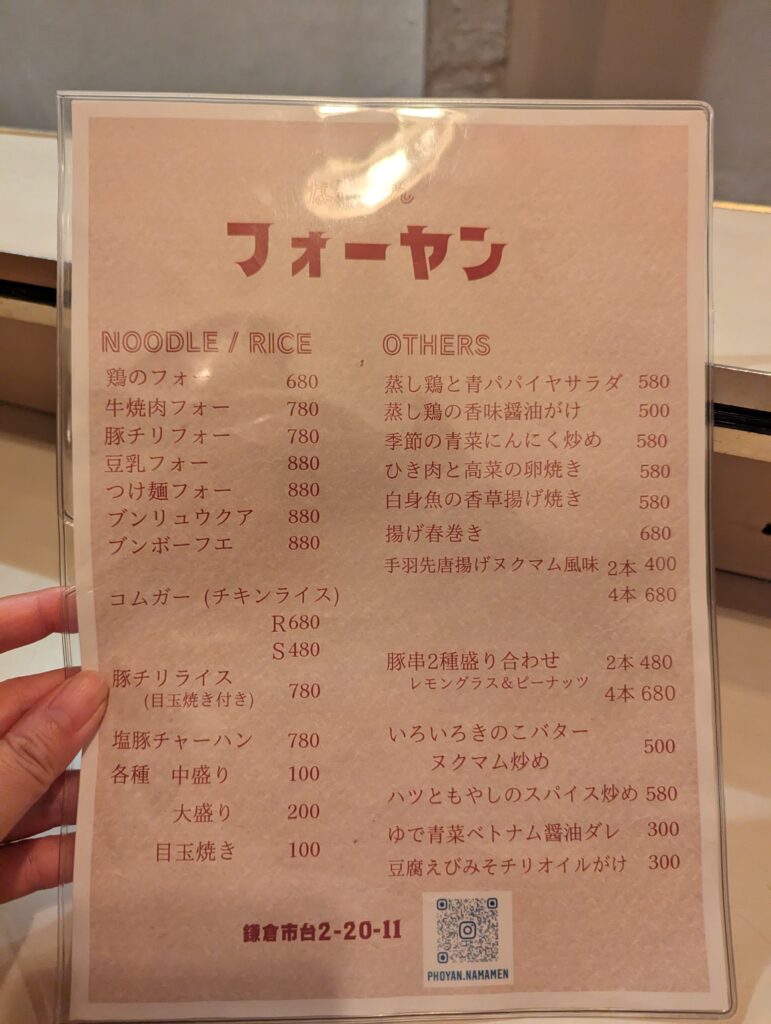 フォーヤン
NOODLE / RICE
鶏のフォー 680
牛焼肉フォー 780
豚チリフォー 780
豆乳フォー 880
つけ麺フォー 880
ブンリュウクア 880
ブンボーフエ 880
コムガー (チキンライス)
R680
S480
豚チリライス 780
(目玉焼き付き)
塩豚チャーハン 780
各種 中盛り 100
大盛り 200
目玉焼き 100
OTHERS
蒸し鶏と青パパイヤサラダ 580
蒸し鶏の香味醤油がけ 500
季節の青菜にんにく炒め 580
ひき肉と高菜の卵焼き 580
白身魚の香草揚げ焼き 580
揚げ春巻き 680
手羽先唐揚げヌクマム風味 2本 400
4本 680
豚串2種盛り合わせ 2本 480
レモングラス&ピーナッツ 4本 680
いろいろきのこバター
ヌクマム炒め 500
ハツともやしのスパイス炒め 580
ゆで青菜ベトナム醤油ダレ 300
豆腐えびみそチリオイルがけ 300
鎌倉市台2-20-11
PHOYAN.NAMAMEN